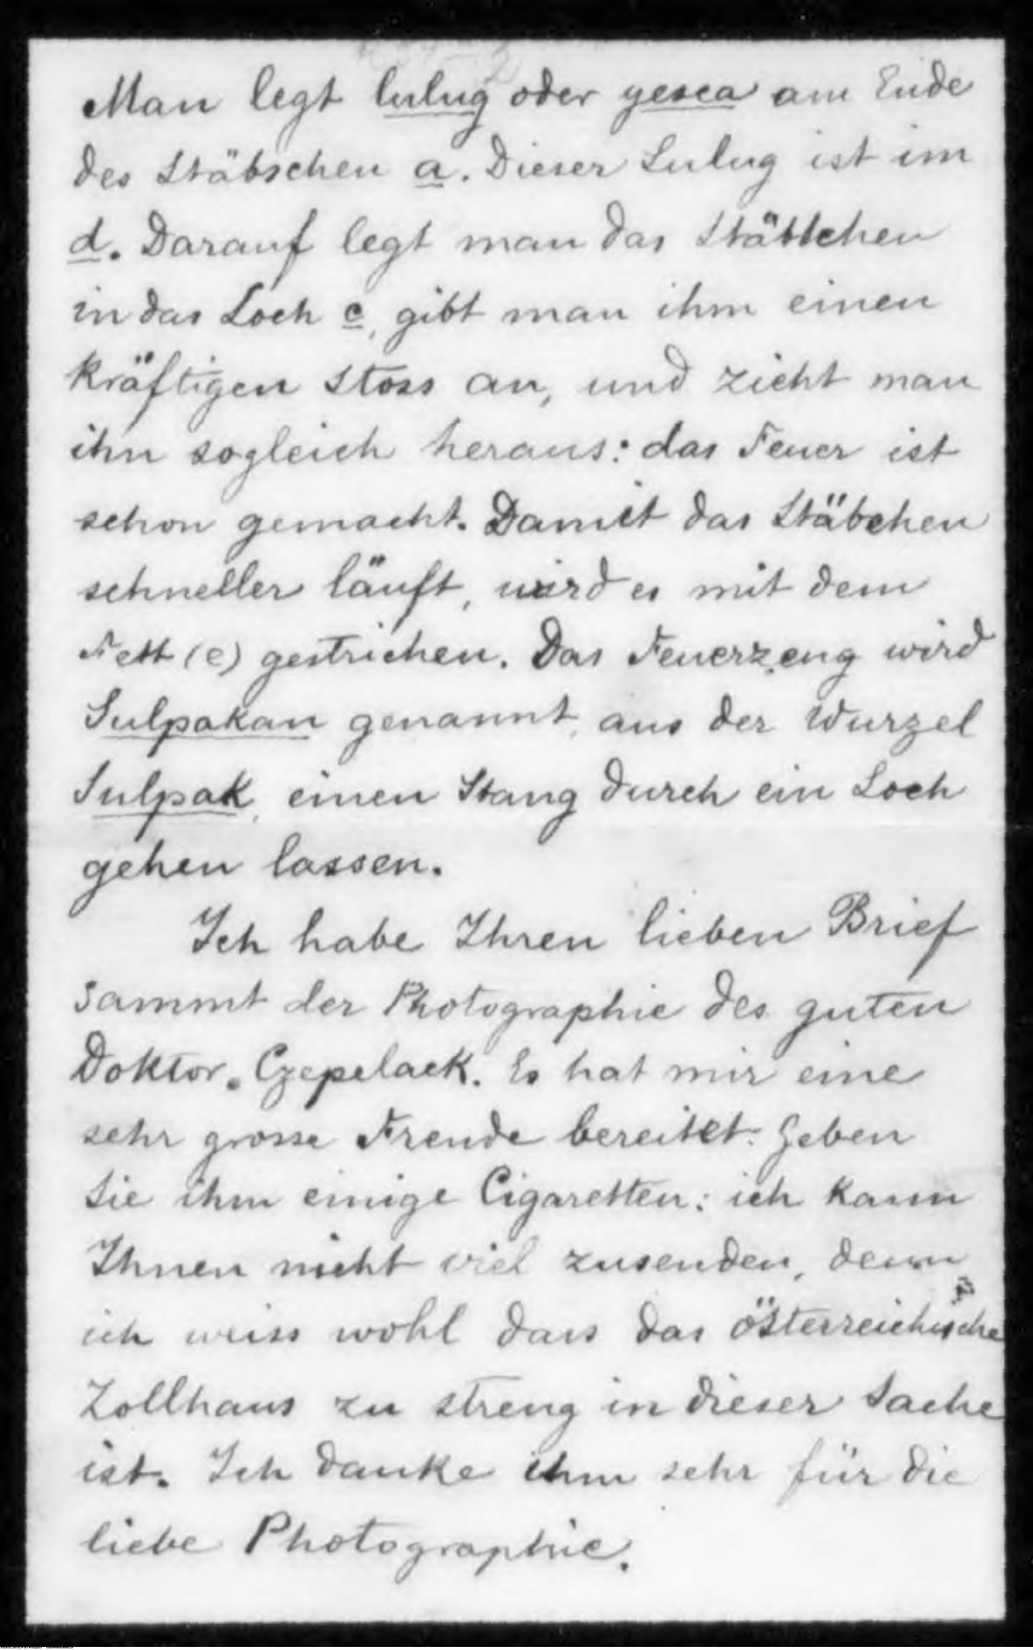 Man legt lulug oder yesca am Ende
des Stäbschen a. Dieser Lulug ist im
d. Darauf legt man das Stäbchen
in das Loch c, gibt man ihm einen
kräftigen Stoss an, und zieht man
ihn sogleich heraus: das Feuer ist
schon gemacht. Damit das Stäbchen
schneller läuft, wird es mit dem
Fett (e) gestrichen. Das Feuerzeug wird
Sulpakan genannt, aus der Wurzel
Sulpak, einen Stang durch ein Loch
gehen lassen.
Ich habe Ihren lieben Brief
sammt der Photographie des guten
Doktor. Czepelack. Es hat mir eine
sehr grosse Freude bereitet. Geben
Sie ihm einige Cigaretten: ich kann
Ihnen nicht viel zusenden, denn
ich weiss wohl dass das österreichische
Zollhaus zu streng in dieser Sache
ist. Ich danke ihm sehr für die
liebe Photographie.